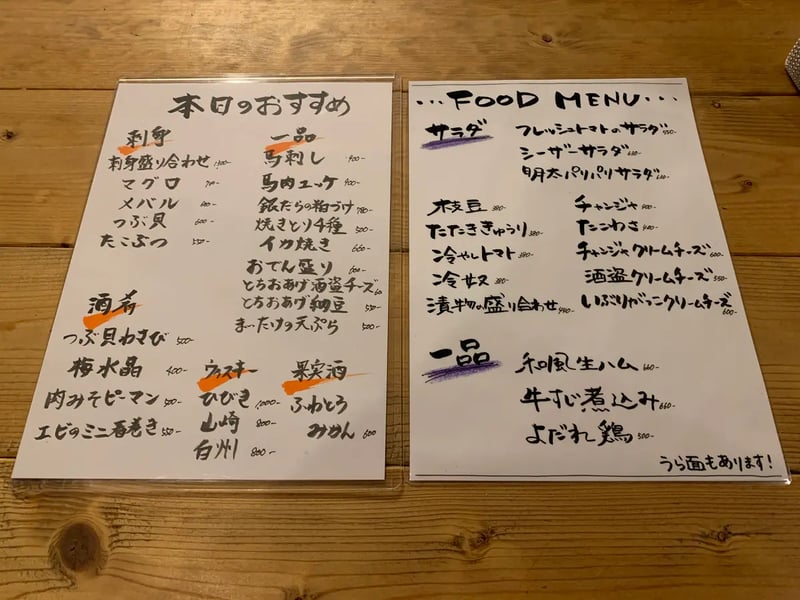 本日のおすすめ
刺身
刺身盛り合わせ
マグロ
メバル
つぶ貝 600-
たこぶつ 550-
酒肴
つぶ貝わさび 500-
梅水晶 400-
肉みそピーマン 500-
エビのミニ春巻き 550-
一品
馬刺し 900-
馬肉ユッケ 900-
銀だらの粕づけ 780-
焼きとり4種 500-
イカ焼き 660-
おでん盛り 600-
とちおあげ酒盗チーズ
とちおあげ納豆 550-
まいたけの天ぷら 500-
ウィスキー
ひびき 1,000-
山崎 800-
白州 800-
果実酒
ふわとろ
みかん 600
...FOOD MENU...
サラダ
フレッシュトマトのサラダ 550-
シーザーサラダ
明太パリパリサラダ
枝豆 380-
たたききゅうり 380-
冷やしトマト 380-
冷奴 380-
漬物の盛り合わせ
チャンジャ 400-
たこわさ 400-
チャンジャクリームチーズ 600-
酒盗クリームチーズ 550-
いぶりがっこクリームチーズ 600-
一品
和風生ハム 660-
牛すじ煮込み 660-
よだれ鶏 500-
うら面もあります!